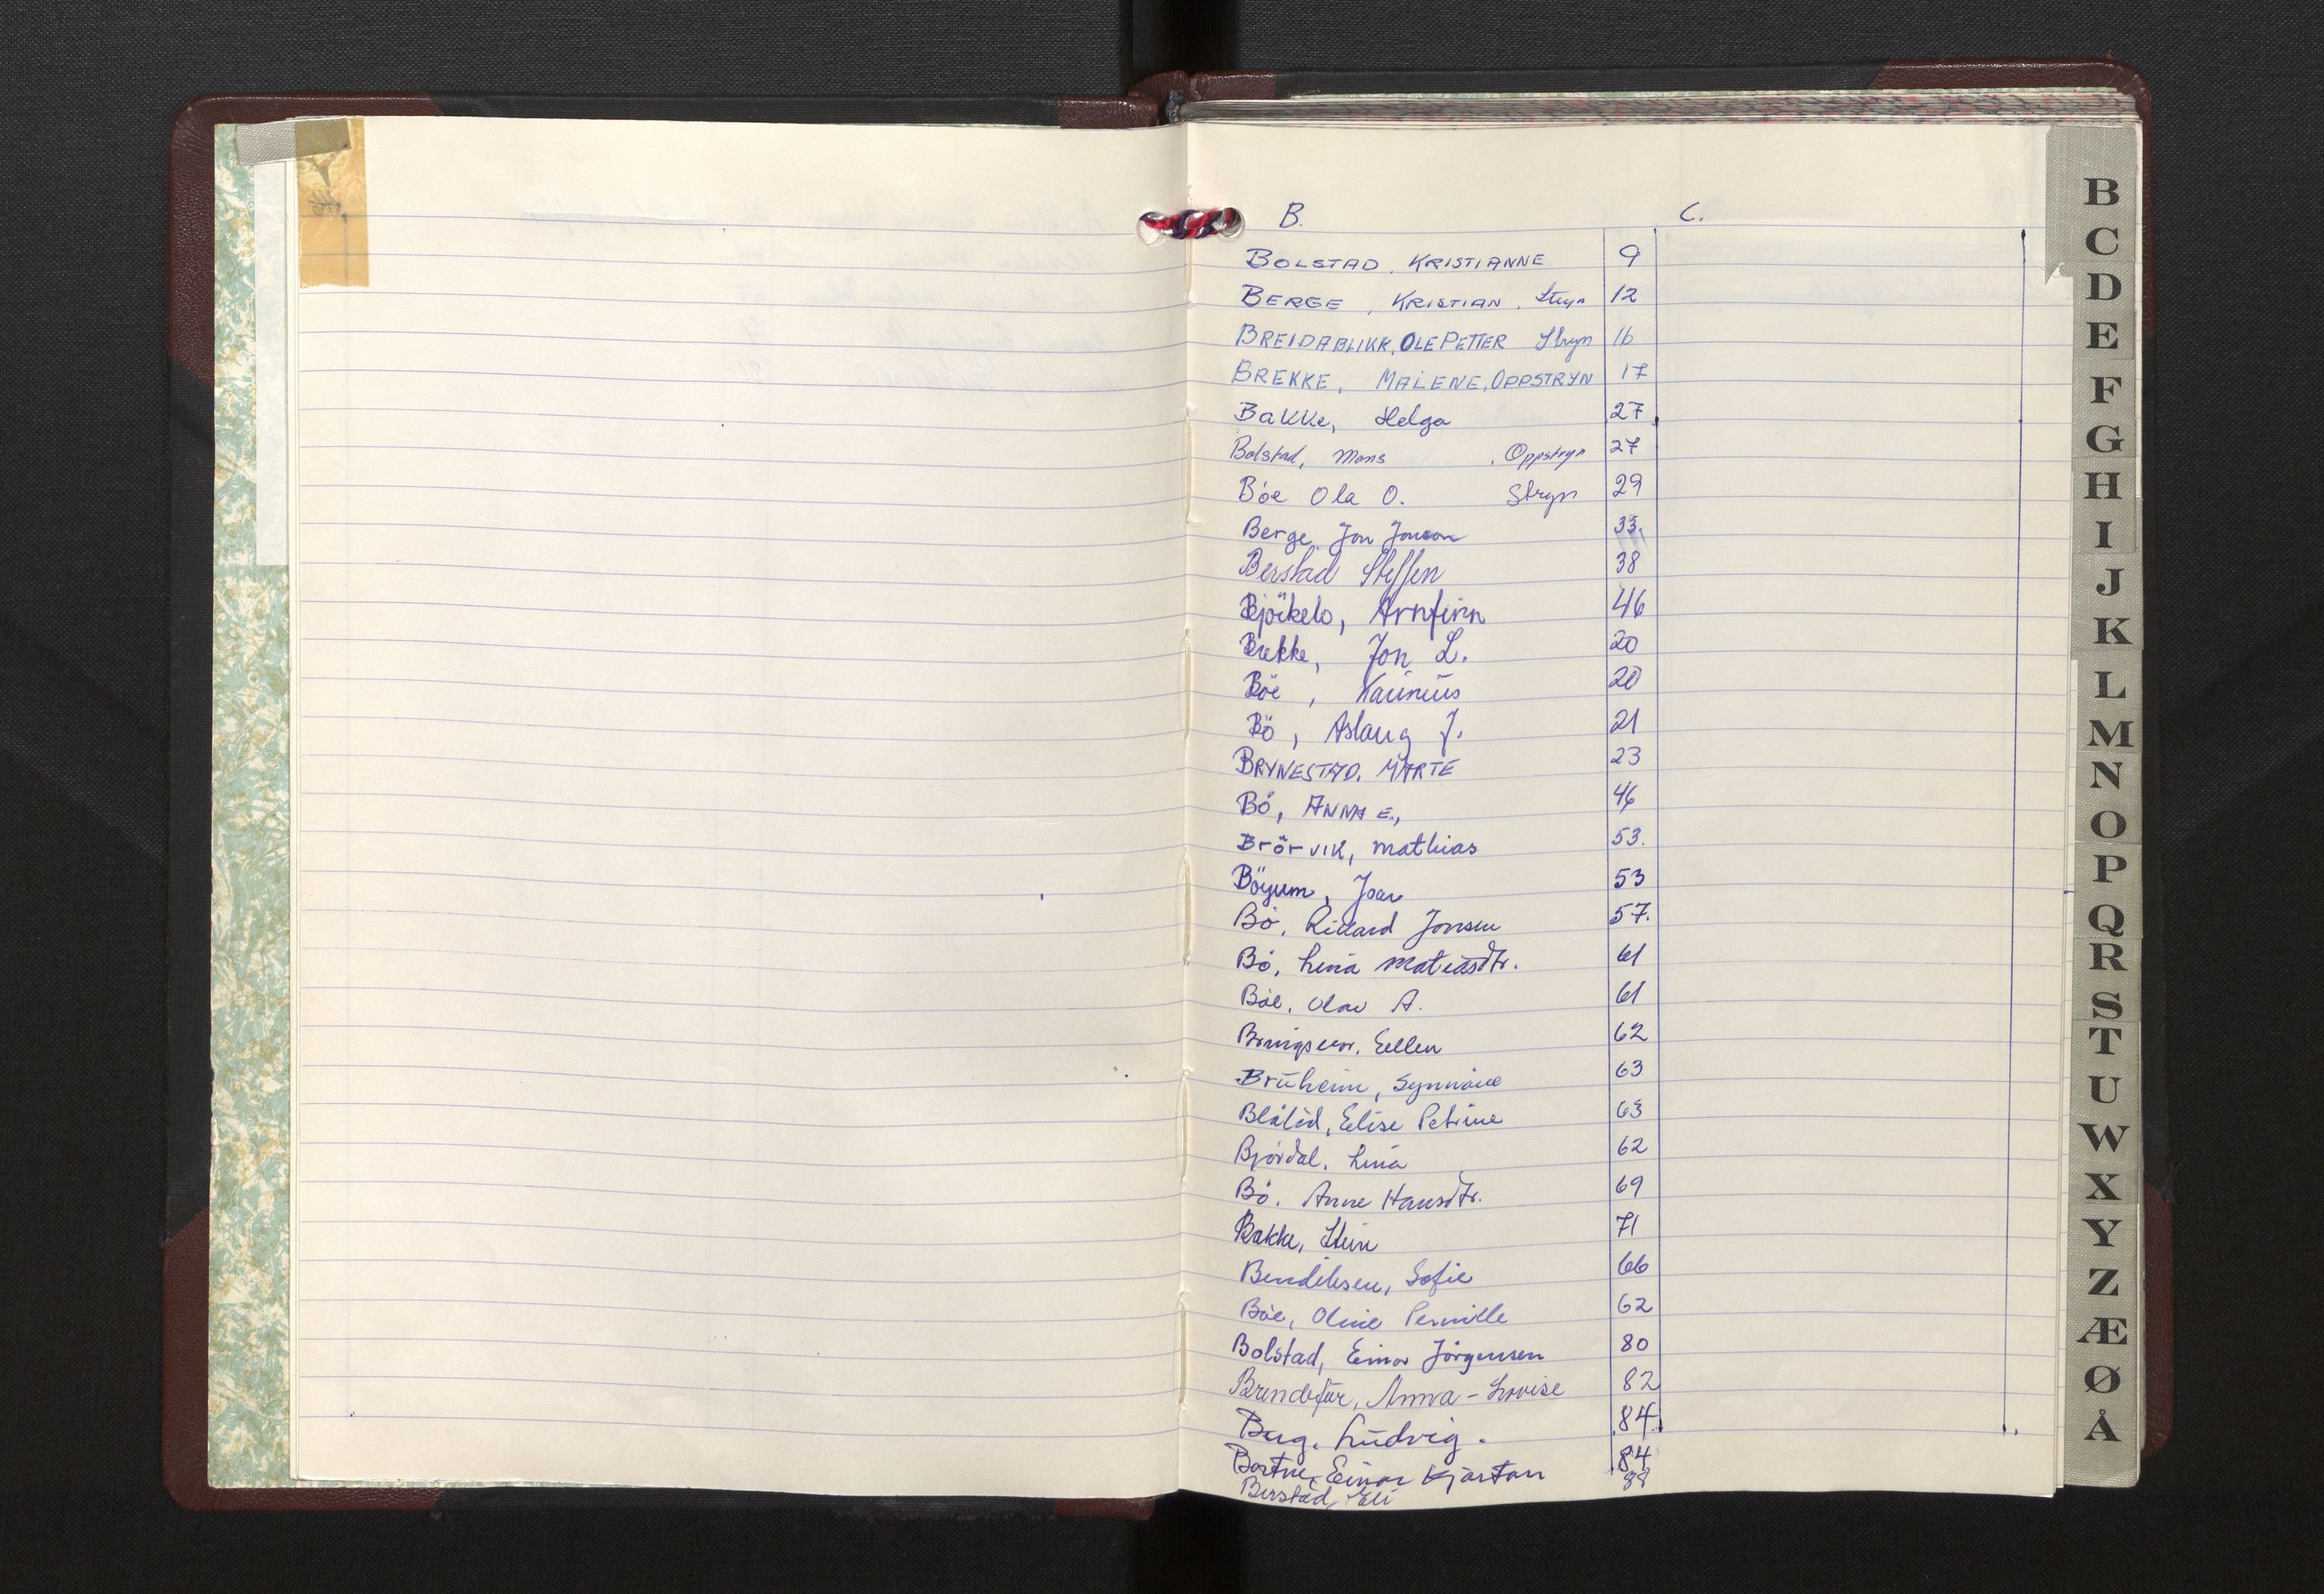 B. C.
BOLSTAD, KRISTIANNE 9
BERGE, KRISTIAN, Stryn 12
BREIDABLIKK, OLE PETTER Stryn 16
BREKKE, MALENE, OPPSTRYN 17
Bakke, Helga 27
Bolstad, Mons, Oppstryn 27
Böe Ola O. Stryn 29
Berge Jon Jonson 33.
Berstad Steffen 38
Bjölkelo, Arnfinn 46
Brekke, Jon L. 20
Böe, Karinius 20
Bö, Aslaug J. 21
BRYNESTAD, MARTE 23
Bö, ANNA E., 46
Brörvik, Mathias 53.
Böyum, Joar 53
Bö, Rikard Jonsen 57.
Bö, Lina Matiasdtr. 61
Böe, Olav A. 61
Bringsvor, Ellen 62
Bruheim, Synnöve 63
Blålid, Elise Petrine 63
Björdal, Lina 62
Bö, Anne Hansdtr. 69
Bakke, Stein 71
Bendiksen, Sofie 66
Böe, Oline Pernille 62
Bolstad, Einar Jörgensen 80
Brendefur, Anna-Lovise 82
Berg, Ludvig. 84
Bortne, Einar Kjartan 84
Berstad, Eli 88
B
C
D
E
F
G
H
I
J
K
L
M
N
O
P
Q
R
S
T
U
W
X
Y
Z
Æ
Ø
Å